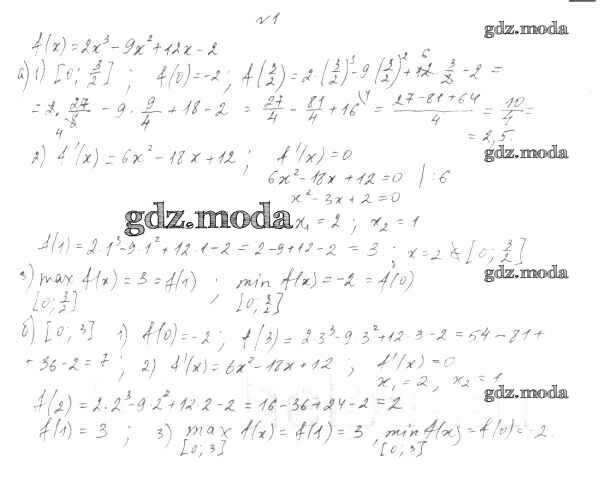 №1
gdz.moda
f(x) = 2x³ - 9x² + 12x - 2
а) 1) [0; 3/2]; f(0) = -2; f(3/2) = 2·(3/2)³ - 9(3/2)² + 12·3/2 - 2 =
= 2·27/8 - 9·9/4 + 18 - 2 = 27/4 - 81/4 + 16 = (27-81+64)/4 = 10/4 =
= 2,5.
2) f'(x) = 6x² - 18x + 12; f'(x) = 0
gdz.moda
6x² - 18x + 12 = 0 |:6
x² - 3x + 2 = 0
gdz.moda
x₁ = 2; x₂ = 1
f(1) = 2·1³ - 9·1² + 12·1 - 2 = 2 - 9 + 12 - 2 = 3; x = 2 ∉ [0; 3/2]
3) max f(x) = 3 = f(1); min f(x) = -2 = f(0)
gdz.moda
[0; 3/2] [0; 3/2]
б) [0; 3] 1) f(0) = -2; f(3) = 2·3³ - 9·3² + 12·3 - 2 = 54 - 81 +
+ 36 - 2 = 7; 2) f'(x) = 6x² - 18x + 12; f'(x) = 0
x₁ = 2, x₂ = 1
gdz.moda
f(2) = 2·2³ - 9·2² + 12·2 - 2 = 16 - 36 + 24 - 2 = 2
f(1) = 3; 3) max f(x) = f(1) = 3, min f(x) = f(0) = -2.
[0; 3] [0; 3]